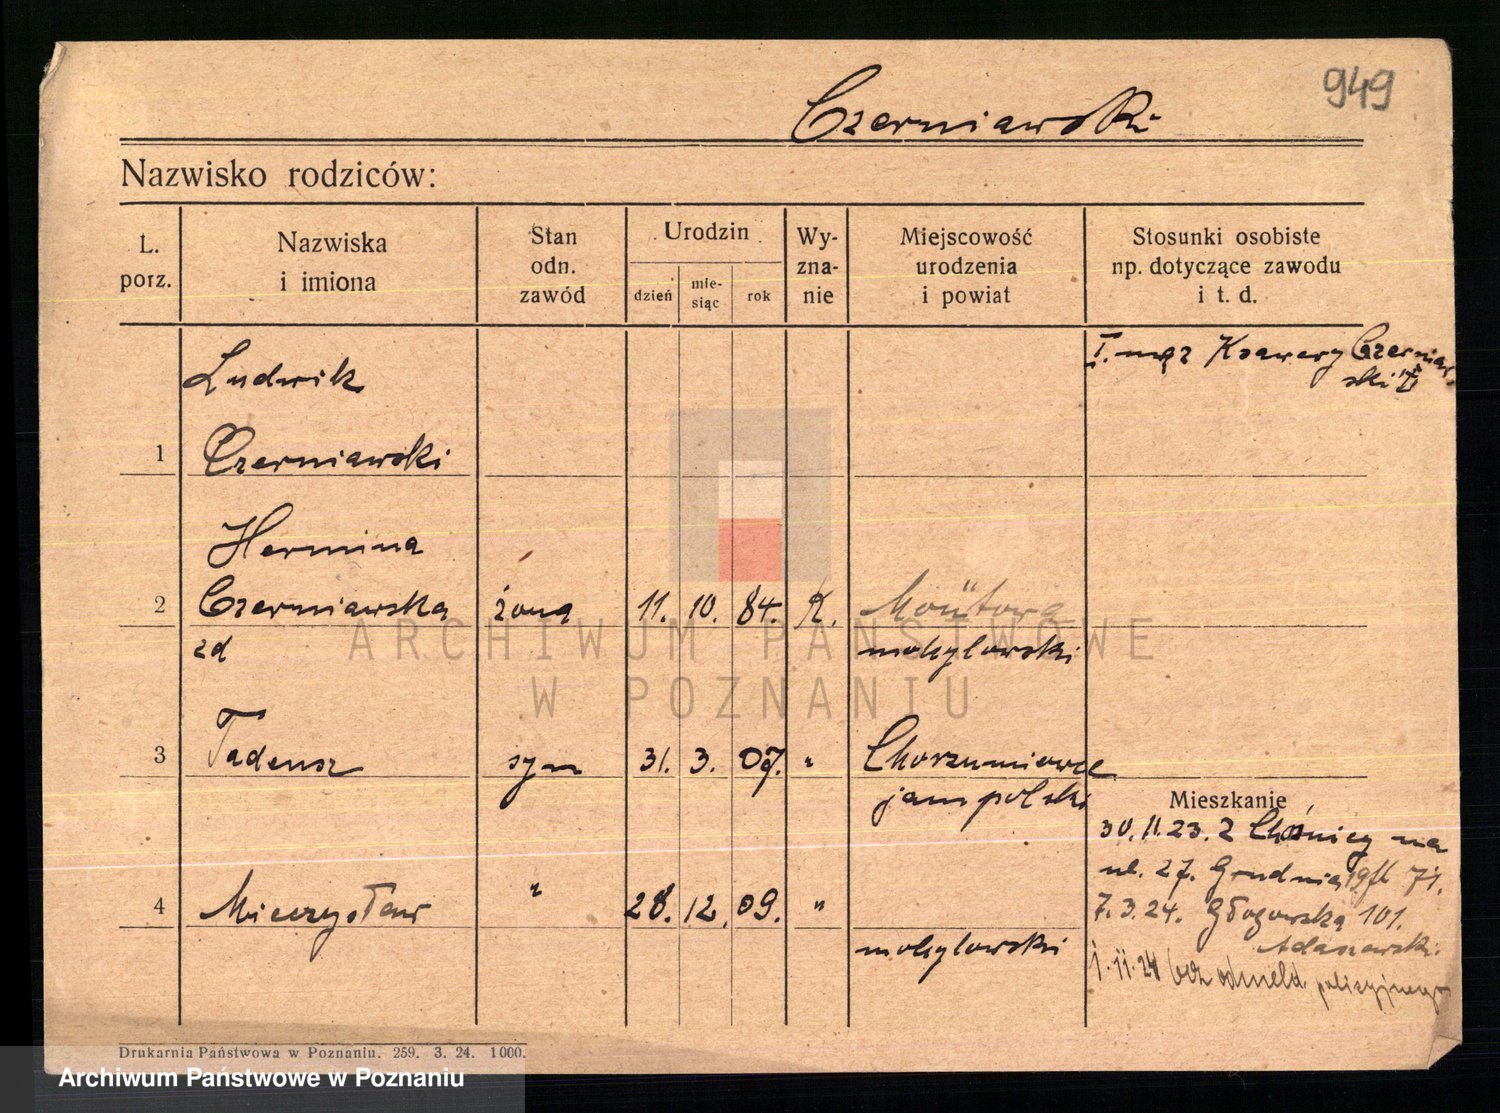 949
Czerniawski
Nazwisko rodziców:
L. porz.
Nazwiska i imiona
Stan odn. zawód
Urodzin
dzień
mie-siąc
rok
Wy-zna-nie
Miejscowość urodzenia i powiat
Stosunki osobiste np. dotyczące zawodu i t. d.
I. mąż Ksawery Czerniaw
ski
Ludwik
1 Czerniawski
Hermina
2 Czerniawska żona 11. 10. 84. K.
zd mohylowski
3 Tadeusz syn 31. 3. 07. "
jampolski
Mieszkanie
30.11.23. z
ul. 27. Grudnia 19
4 Mieczysław " 28. 12. 09. "
7.3.24. Głogowska 101.
mohylowski Adaszewski.
1.11.24 bez odmeld. policyjnego
Drukarnia Państwowa w Poznaniu. 259. 3. 24. 1000.
ARCHIWUM PAŃSTWOWE
W POZNANIU
Archiwum Państwowe w Poznaniu